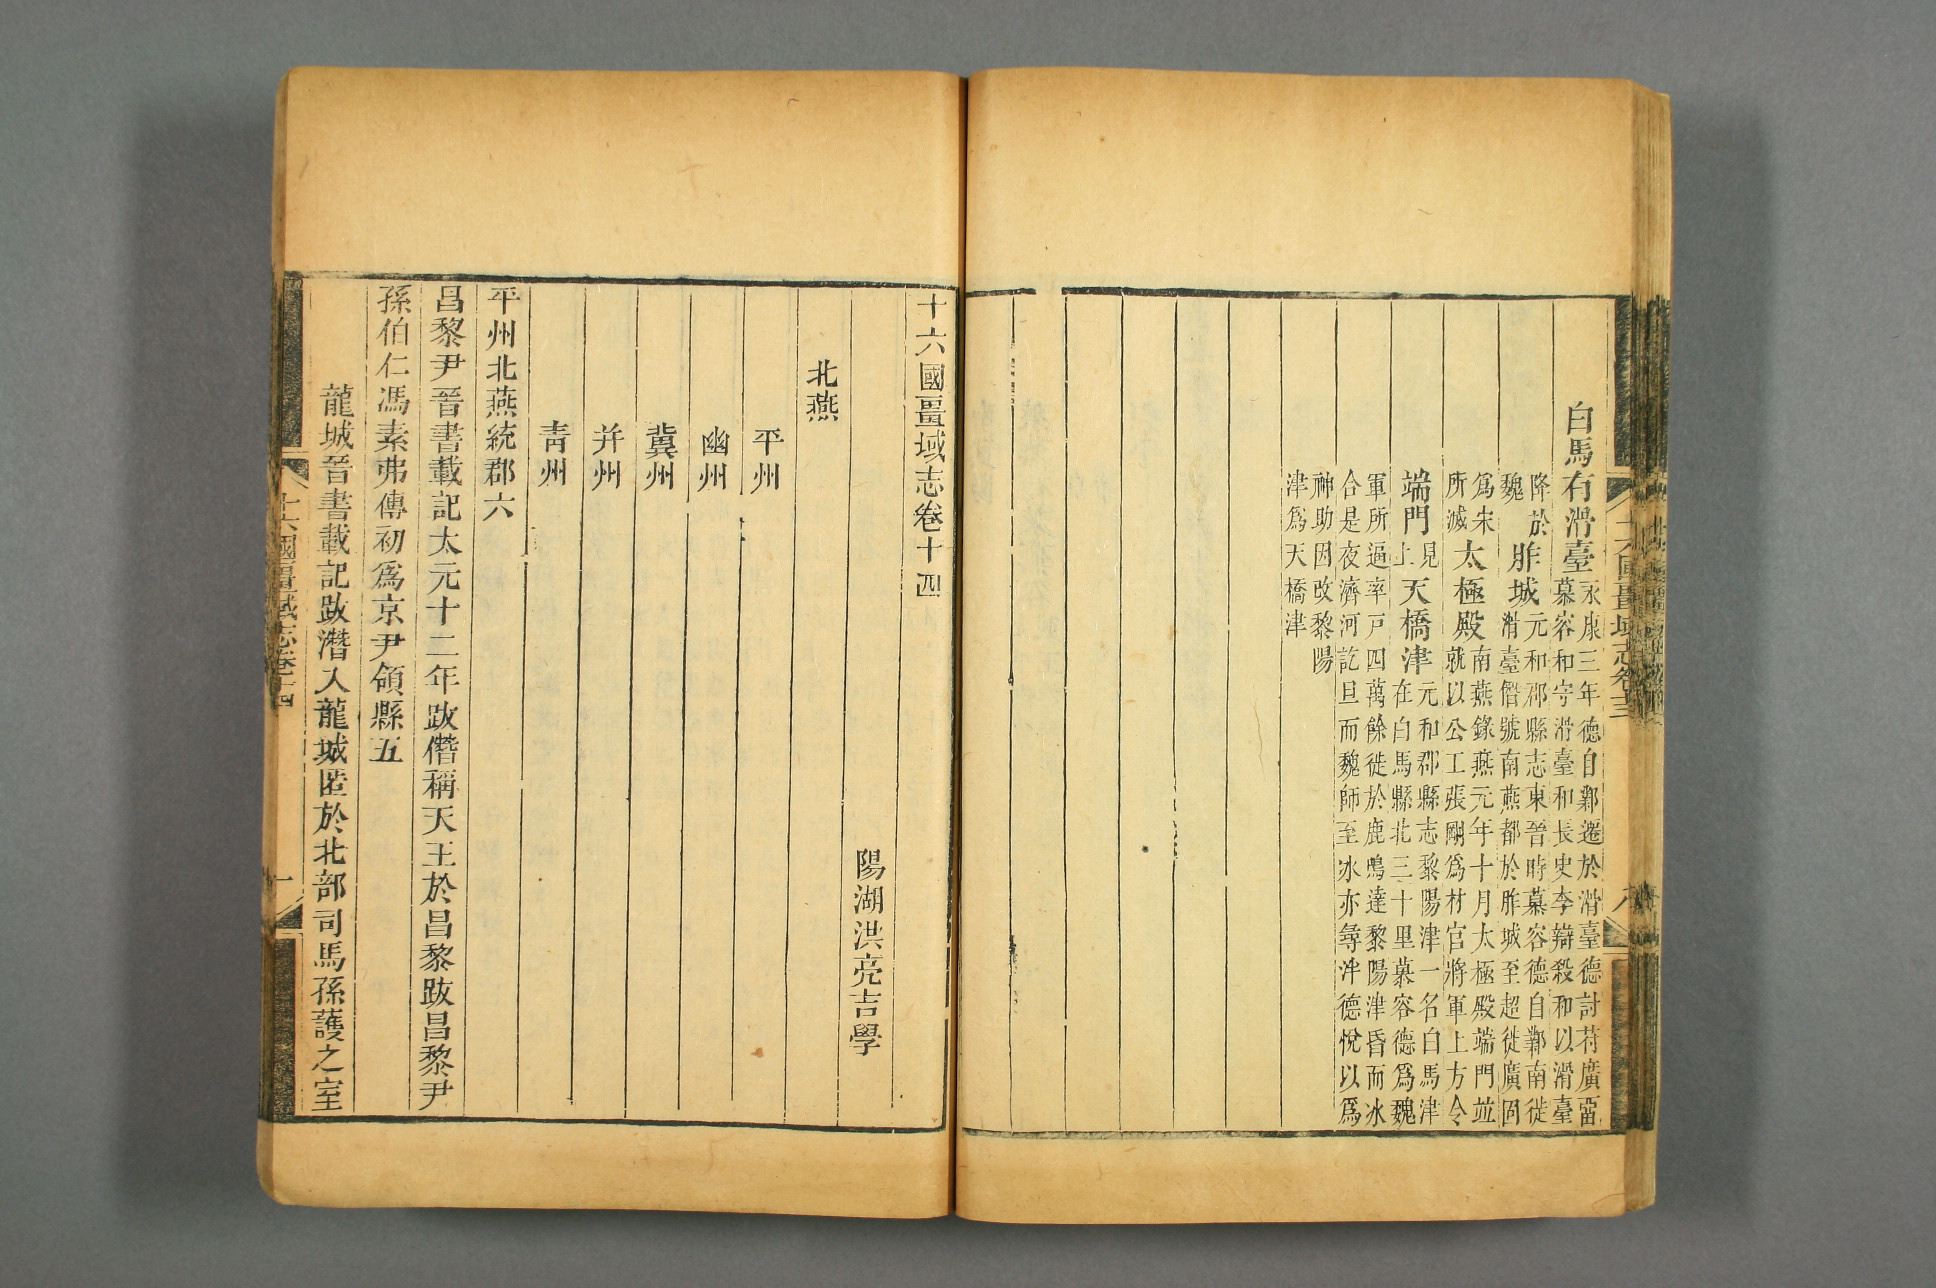 白馬有滑臺永康三年德自鄴遷於滑臺德討苻廣畱
慕容和守滑臺和長史李辯殺和以滑臺
降於魏胙城元和郡縣志東晉時慕容德自鄴南徙
滑臺僭號南燕都於胙城至超徙廣固
爲宋所滅太極殿南燕錄燕元年十月太極殿端門並
就以公工張剛爲材官將軍上方令
端門見上天橋津元和郡縣志黎陽津一名白馬津
在白馬縣北三十里慕容德爲魏
軍所逼率戸四萬餘徙於鹿鳴達黎陽津昏而冰
合是夜濟河訖旦而魏師至冰亦尋泮德悅以爲
神助因改黎陽
津爲天橋津
十六國畺域志卷十三
八
十六國畺域志卷十四
陽湖洪亮吉學
北燕
平州
幽州
冀州
并州
靑州
平州北燕統郡六
昌黎尹晉書載記太元十二年跋僭稱天王於昌黎跋昌黎尹
孫伯仁馮素弗傳初爲京尹領縣五
龍城晉書載記跋潛入龍城匿於北部司馬孫護之室
十六國畺域志卷十四
一